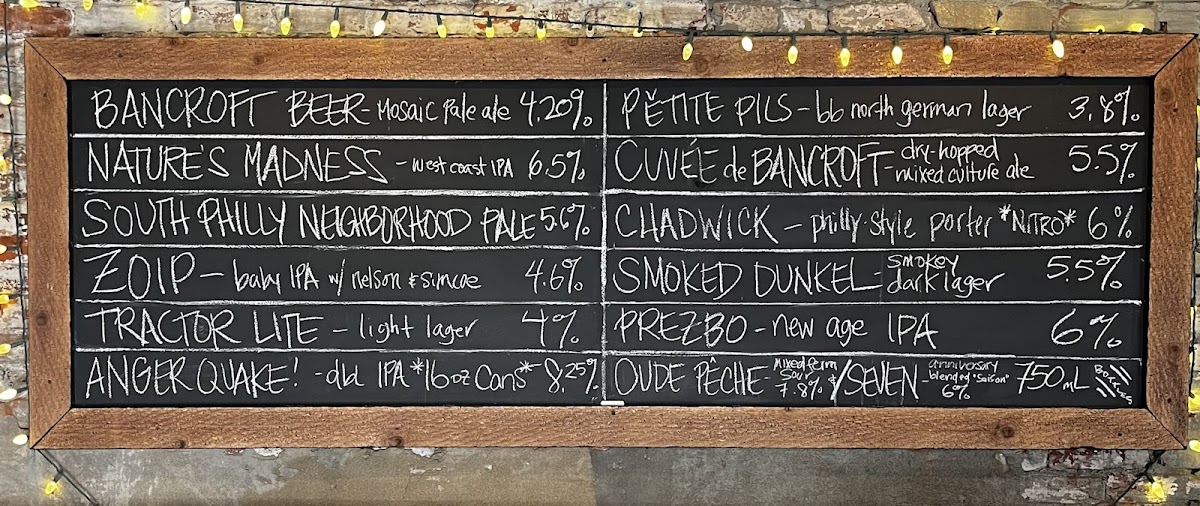 BANCROFT BEER - Mosaic Pale ale 4.20%
NATURE'S MADNESS - west coast IPA 6.5%
SOUTH PHILLY NEIGHBORHOOD PALE 5.6%
ZOIP - baby IPA w/ nelson & simcoe 4.6%
TRACTOR LITE - light lager 4%
ANGER QUAKE! - dbl IPA *16oz Cans* 8.25%
PĔTITE PILS - bb north german lager 3.8%
CUVÉE de BANCROFT - dry-hopped mixed culture ale 5.5%
CHADWICK - philly-style porter *NITRO* 6%
SMOKED DUNKEL - smokey dark lager 5.5%
PREZBO - new age IPA 6%
OUDE PÊCHE - mixed ferm sour 7.8% & / SEVEN - anniversary blended "saison" 6% 750mL BOTTLES